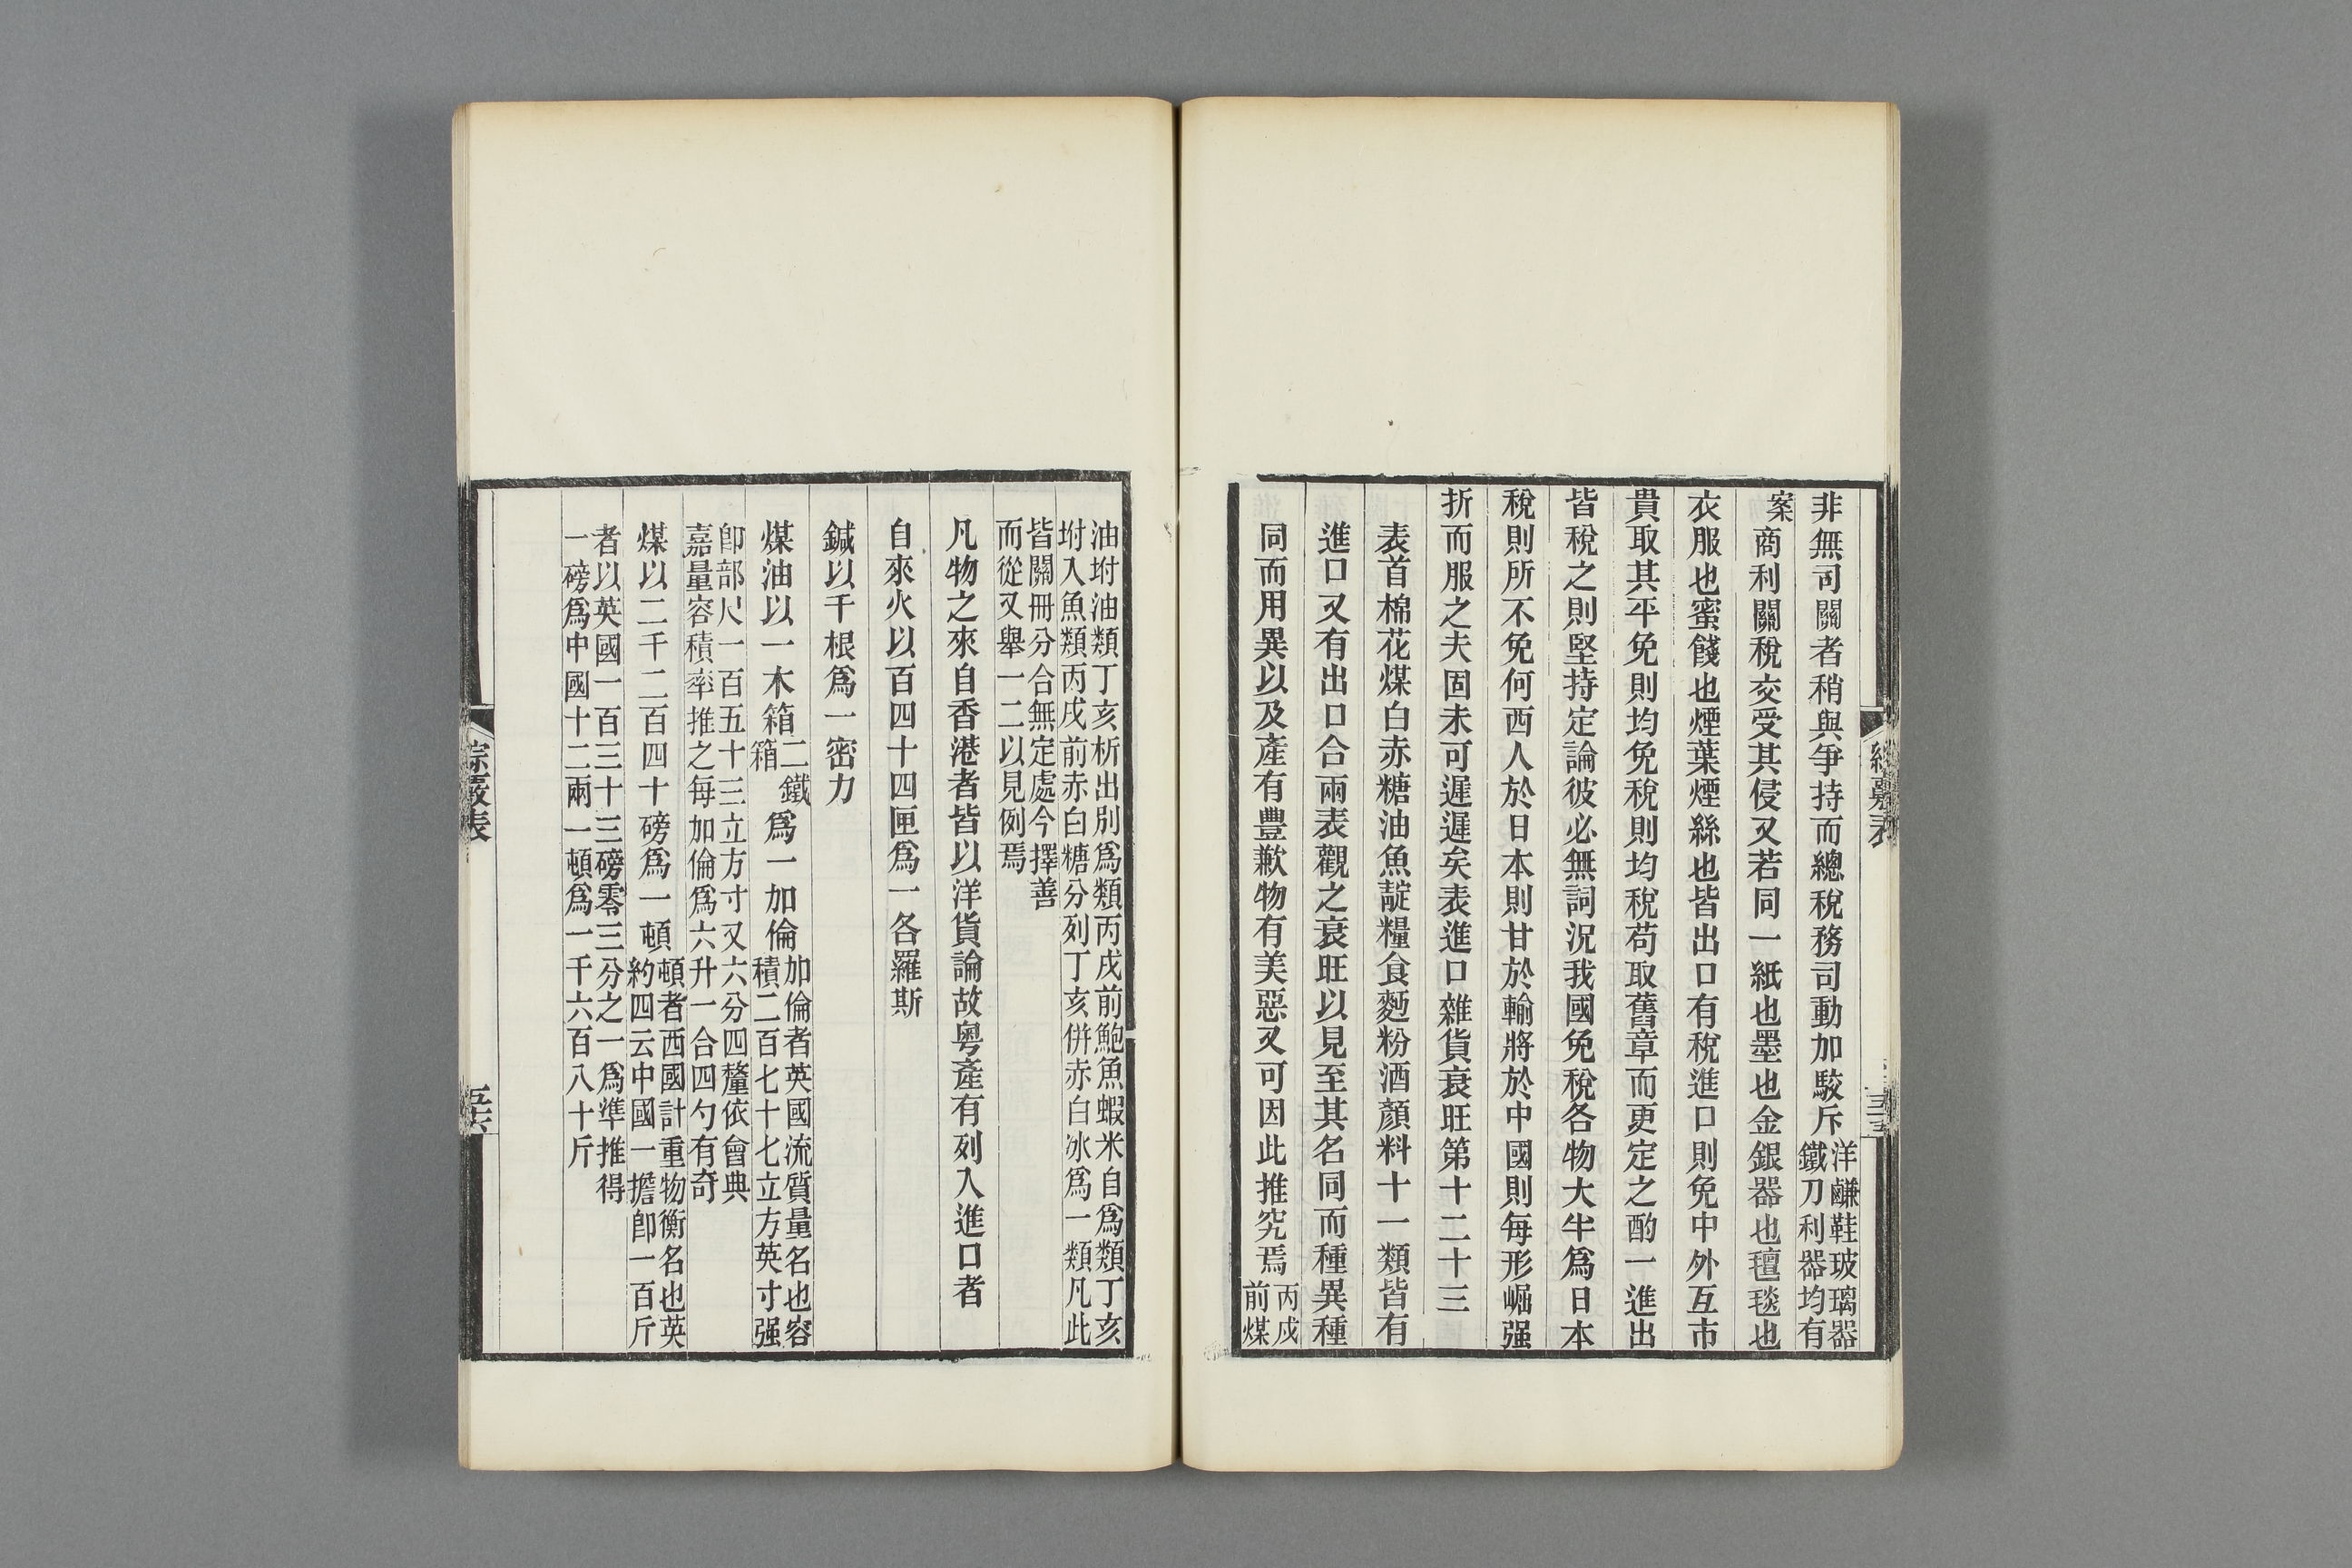 非無司關者稍與爭持而總稅務司動加駮斥洋鹻鞋玻璃器鐵刀利器均有
案商利關稅交受其侵又若同一紙也墨也金銀器也氊毯也
衣服也蜜餞也煙葉煙絲也皆出口有稅進口則免中外互市
貴取其平免則均免稅則均稅苟取舊章而更定之酌一進出
皆稅之則堅持定論彼必無詞況我國免稅各物大半爲日本
稅則所不免何西人於日本則甘於輸將於中國則每形崛强
折而服之夫固未可遲遲矣表進口雜貨衰旺第十二十三
表首棉花煤白赤糖油魚靛糧食麪粉酒顏料十一類皆有
進口又有出口合兩表觀之衰旺以見至其名同而種異種
同而用異以及產有豐歉物有美惡又可因此推究焉丙戌前煤
油坿油類丁亥析出別爲類丙戌前鮑魚蝦米自爲類丁亥
坿入魚類丙戌前赤白糖分列丁亥併赤白冰爲一類凡此
皆關冊分合無定處今擇善
而從又舉一二以見例焉
凡物之來自香港者皆以洋貨論故粤產有列入進口者
自來火以百四十四匣爲一各羅斯
鍼以千根爲一密力
煤油以一木箱二鐵箱爲一加倫加倫者英國流質量名也容積二百七十七立方英寸强
卽部尺一百五十三立方寸又六分四釐依會典
嘉量容積率推之每加倫爲六升一合四勺有奇
煤以二千二百四十磅爲一頓頓者西國計重物衡名也英約四云中國一擔卽一百斤
者以英國一百三十三磅零三分之一爲準推得
一磅爲中國十二兩一頓爲一千六百八十斤
綜覈表
五六